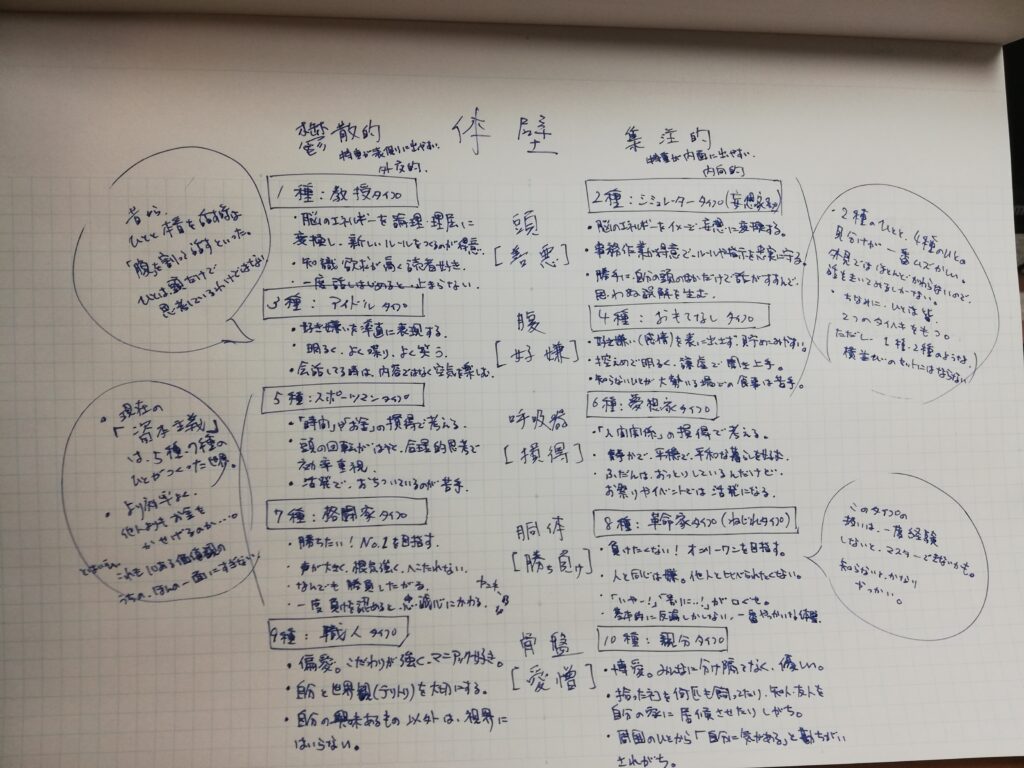 体壁
鬱散的
特徴が表側に出やすい.
外交的.
集注的
特徴が内面に出やすい.
内向的
昔から、
ひとと本音を話す際は
「腹を割って話す」といった。
ひとは頭だけで
思考しているわけではない
1種：教授タイプ
・脳のエネルギーを論理・理屈に
変換し、新しいルールをつくるのが得意.
・知識欲求が高く読書好き.
・一度話しはじめると、止まらない.
頭
[善悪]
2種：シミュレータータイプ(妄想家)
・脳のエネルギーをイメージ・妄想に変換する。
・事務作業が得意で、ルールや指示を忠実に守る。
・勝手に自分の頭のなかだけで話がすすんで、
思わぬ誤解を生む.
3種：アイドルタイプ
・好き嫌いを率直に表現する.
・明るく、よく喋り、よく笑う.
・会話してる時は、内容ではなく空気を楽しむ.
腹
[好嫌]
4種：おもてなしタイプ
・好き嫌い(感情)を表に出さず、貯めこみやすい。
・控えめで明るく、謙虚で聞き上手。
・知らないひとが大勢いる場での食事は苦手。
・2種のひと、4種のひとの
見分けが一番ムズかしい。
外見ではほとんどかわらないので、
話をきいてみるしかない。
・ちなみに、ひとは皆
2つのタイヘキをもつ。
ただし、1種・2種のような、
横並びのセットにはならない
・現在の
「資本主義」
は、5種・7種の
ひとがつくった世界。
・より効率よく、
他人よりもお金を
かせげるのか…。
これも10ある価値観の
うちの、ほんの一面にすぎない
5種：スポーツマンタイプ
・「時間」や「お金」の損得で考える.
・頭の回転がはやく、合理的思考で
効率重視.
・活発で、おちついているのが苦手.
呼吸器
[損得]
6種：夢想家タイプ
・「人間関係」の損得で考える。
・静かで、平穏で、平和な暮らしを好む
・ふだんは、おっとりしているんだけど、
お祭りやイベントでは活発になる.
7種：格闘家タイプ
・勝ちたい！No.1を目指す.
・声が大きく、根気強く、へこたれない.
・なんでも勝負したがる.
・一度負けを認めると、忠誠心にかわる.
胴体
[勝ち負け]
8種：革命家タイプ(ねじれタイプ)
・負けたくない！オンリーワンを目指す。
・人と同じは嫌。他人と比べられたくない。
・「いやー！」「別に…！」が口ぐせ。
・条件的に反論しかしない、一番やっかいな体壁
このタイプの
扱いは、一度経験
しないと、マスターできないかも。
知らないと、かなり
やっかい。
9種：職人タイプ
・偏愛。こだわりが強く、マニアック好き。
・自分と世界観(テリトリ)を大切にする。
・自分の興味あるもの以外は、視界に
はいらない。
骨盤
[愛憎]
10種：親分タイプ
・博愛。みんなに分け隔てなく、優しい。
・拾ったネコを何匹も飼ってたり、知人・友人を
自分の家に居候させたりしがち。
・周囲のひとから「自分に気がある」と勘ちがい
されがち。